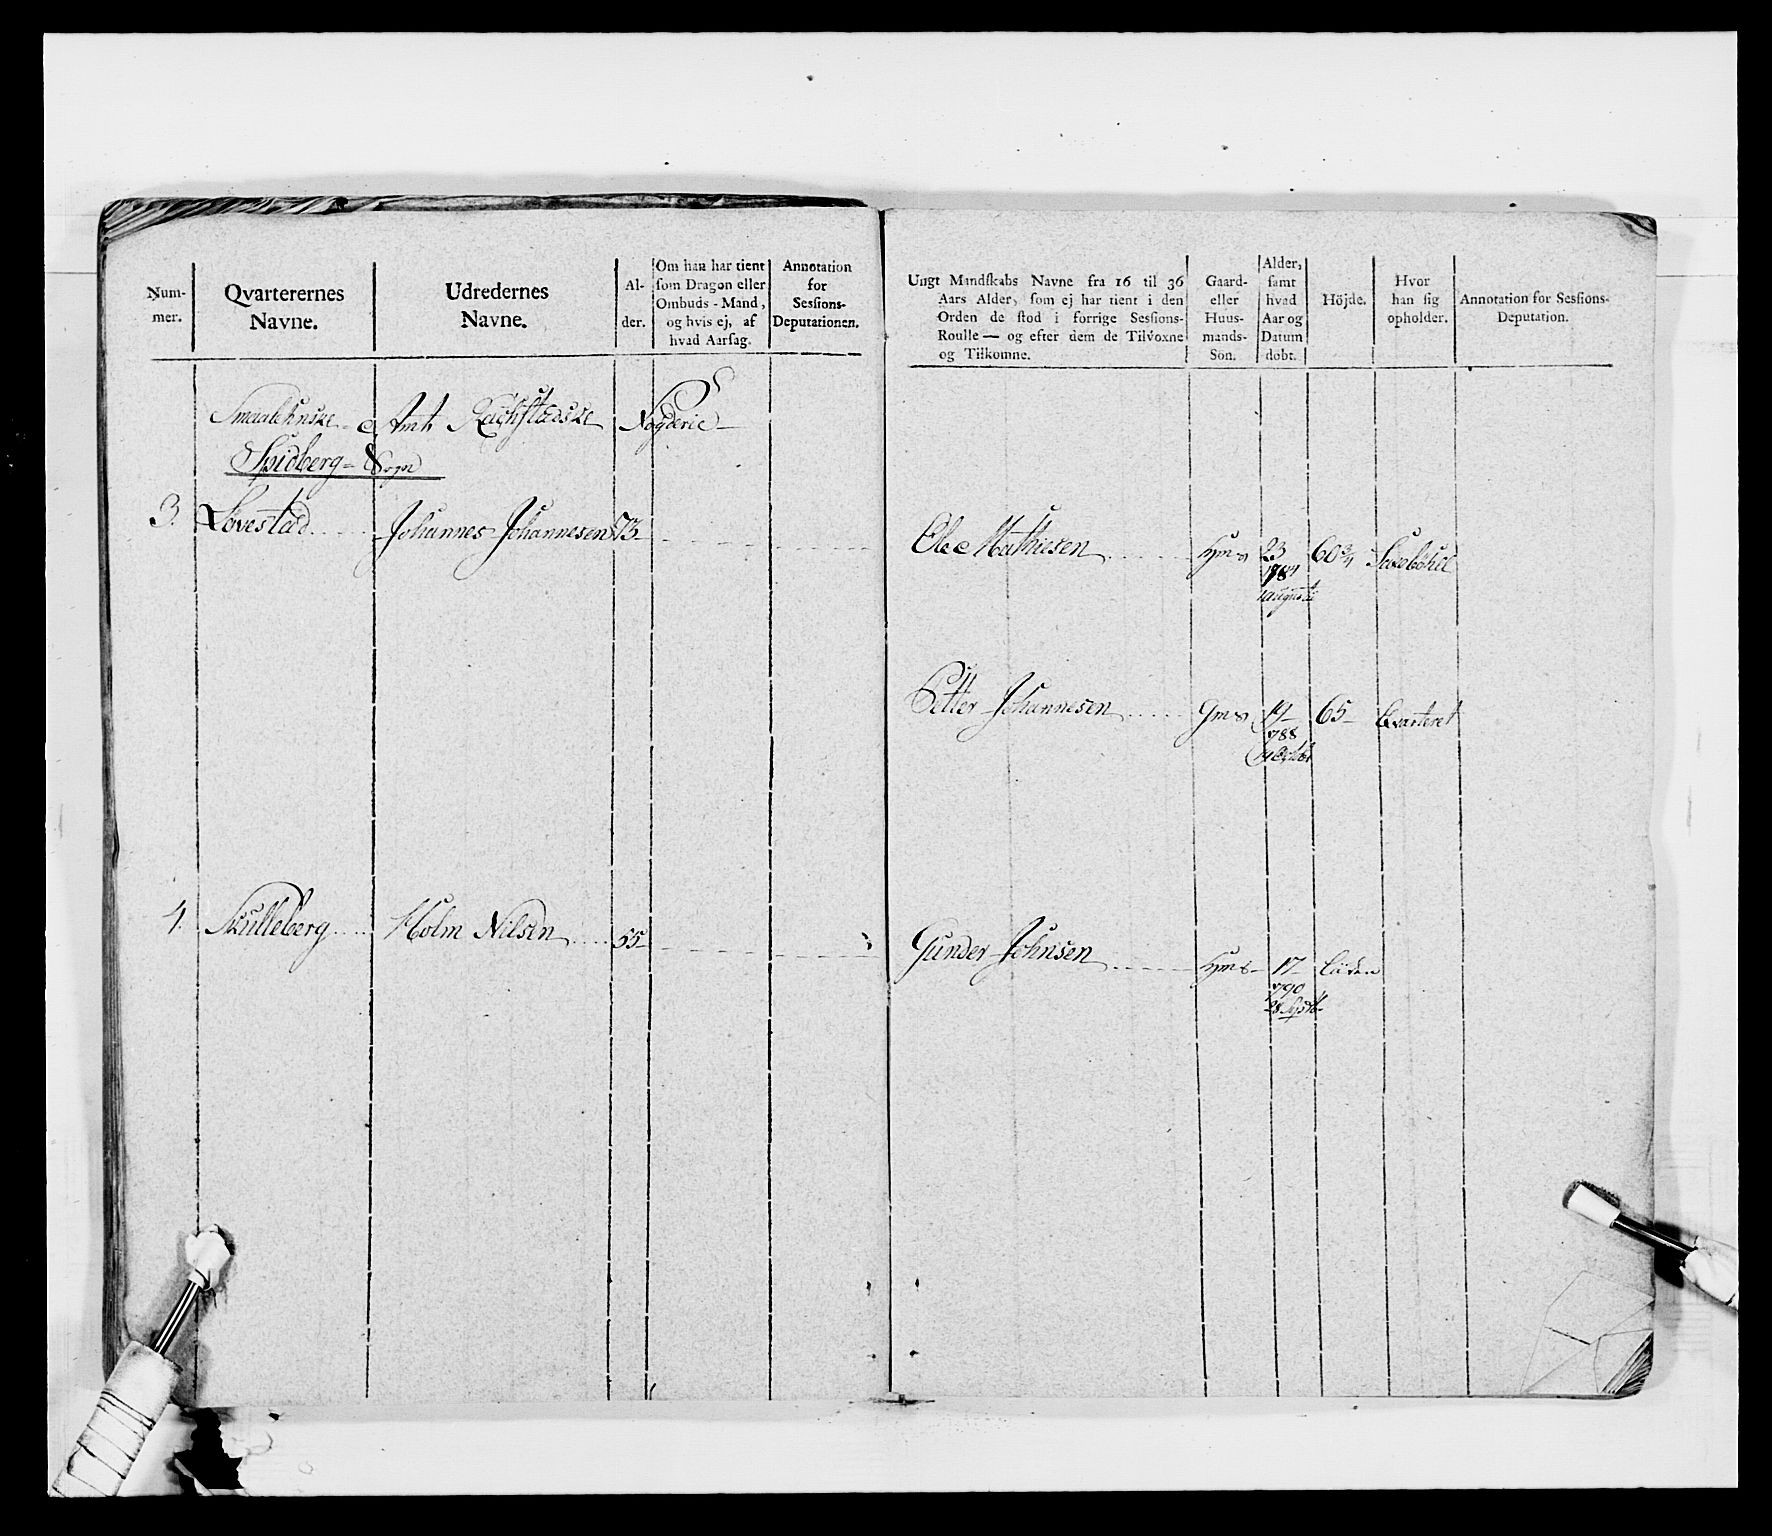 Num-
mer.
Qvarterernes
Navne.
Udredernes
Navne.
Al-
der.
Om han har tient
som Dragon eller
Ombuds-Mand,
og hvis ej, af
hvad Aarsag.
Annotation
for
Sessions-
Deputationen.
Ungt Mandskabs Navne fra 16 til 36
Aars Alder, som ej har tient i den
Orden de stod i forrige Sessions-
Roulle — og efter dem de Tilvoxne
og Tilkomne.
Gaard-
eller
Huus-
mands-
Søn.
Alder,
samt
hvad
Aar og
Datum
døbt.
Höjde.
Hvor
han sig
opholder.
Annotation for Sessions-
Deputation.
Smaalehnske Amt
Spidberg - Sogn
3. Løvestad Johannes Johannesen 73
Ole Mathiesen Hms 23 60 3/4
1784
august
Petter Johannesen Gms 19 65 Qvarteret
1788
4. Skulleberg Holm Nilsen 55
Gunder Johnsen Hms 17 liden
1790
28 Septb